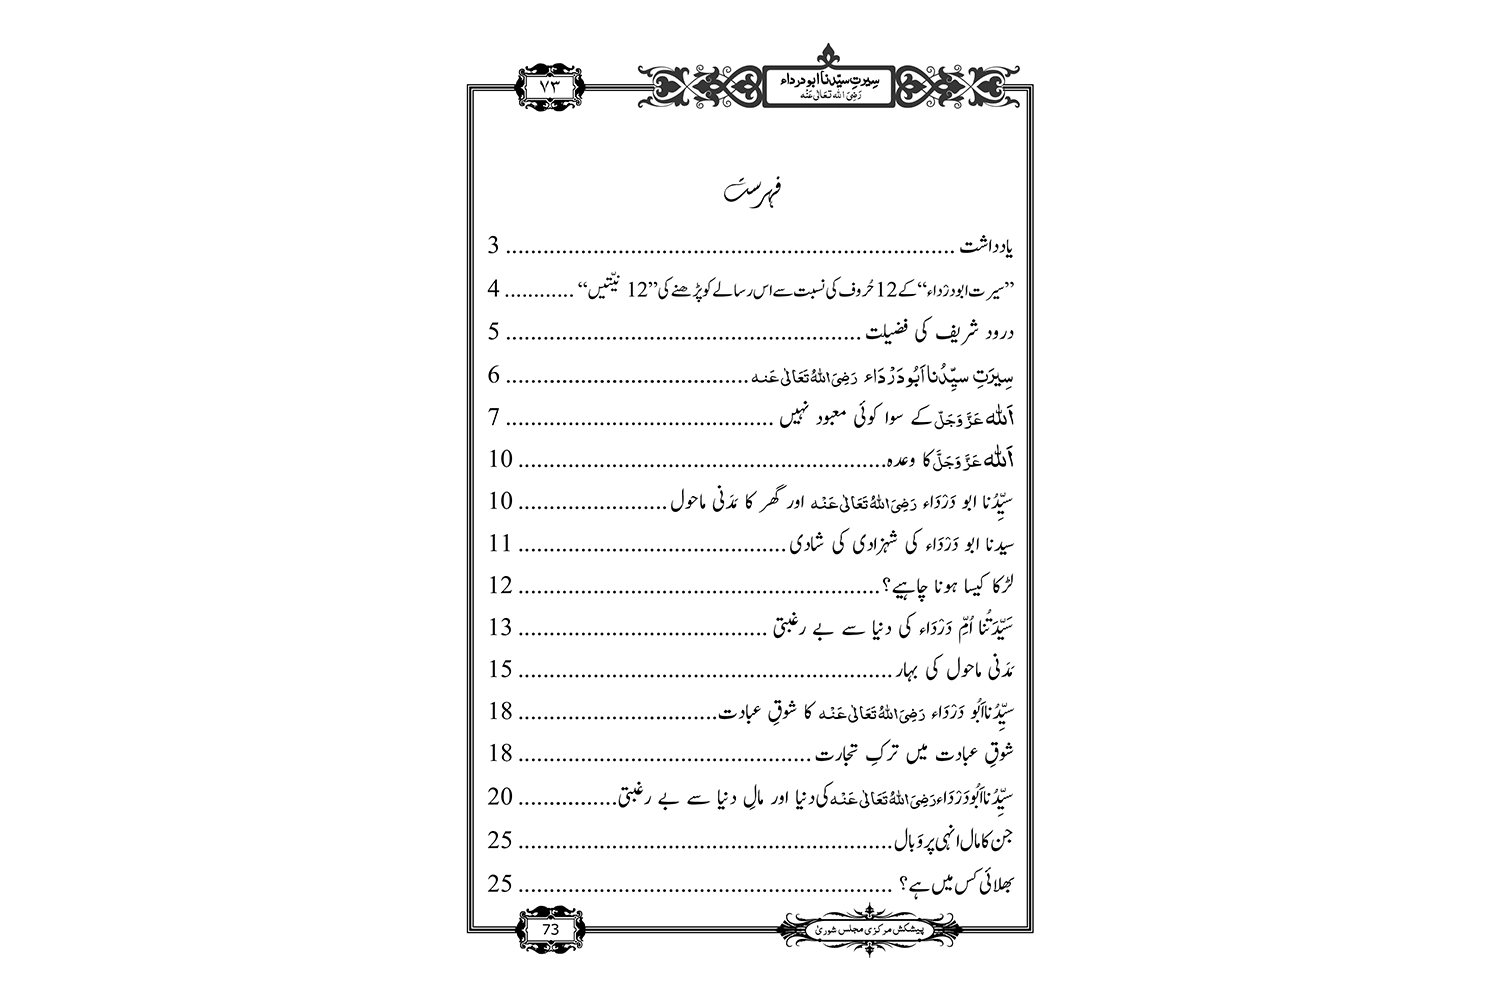 ۷۳
سیرتِ سیّدنا ابو درداء
رَضِیَ اللہ تَعَالٰی عَنْہ
فہرست
یادداشت ........ 3
”سیرت ابودرْداء“ کے 12 حُروف کی نسبت سے اس رسالے کو پڑھنے کی ”12 نیّتیں“ ........ 4
درود شریف کی فضیلت ........ 5
سِیرَتِ سیِّدُنا اَبُو دَرْدَاء رَضِیَ اللہُ تَعَالٰی عَنہ ........ 6
اَللہ عَزَّ وَجَلَّ کے سوا کوئی معبود نہیں ........ 7
اَللہ عَزَّ وَجَلَّ کا وعدہ ........ 10
سیِّدُنا ابو دَرْدَاء رَضِیَ اللہُ تَعَالٰی عَنْہ اور گھر کا مَدَنی ماحول ........ 10
سیدنا ابو دَرْدَاء کی شہزادی کی شادی ........ 11
لڑکا کیسا ہونا چاہیے؟ ........ 12
سَیِّدَتُنا اُمِّ دَرْدَاء کی دنیا سے بے رغبتی ........ 13
مَدَنی ماحول کی بہار ........ 15
سیِّدُنا اَبُو دَرْدَاء رَضِیَ اللہُ تَعَالٰی عَنْہ کا شوقِ عبادت ........ 18
شوقِ عبادت میں ترکِ تجارت ........ 18
سیِّدُنا اَبُو دَرْدَاء رَضِیَ اللہُ تَعَالٰی عَنْہ کی دنیا اور مالِ دنیا سے بے رغبتی ........ 20
جن کا مال انہی پر وَبال ........ 25
بھلائی کس میں ہے؟ ........ 25
پیشکش مرکزی مجلس شوریٰ
73